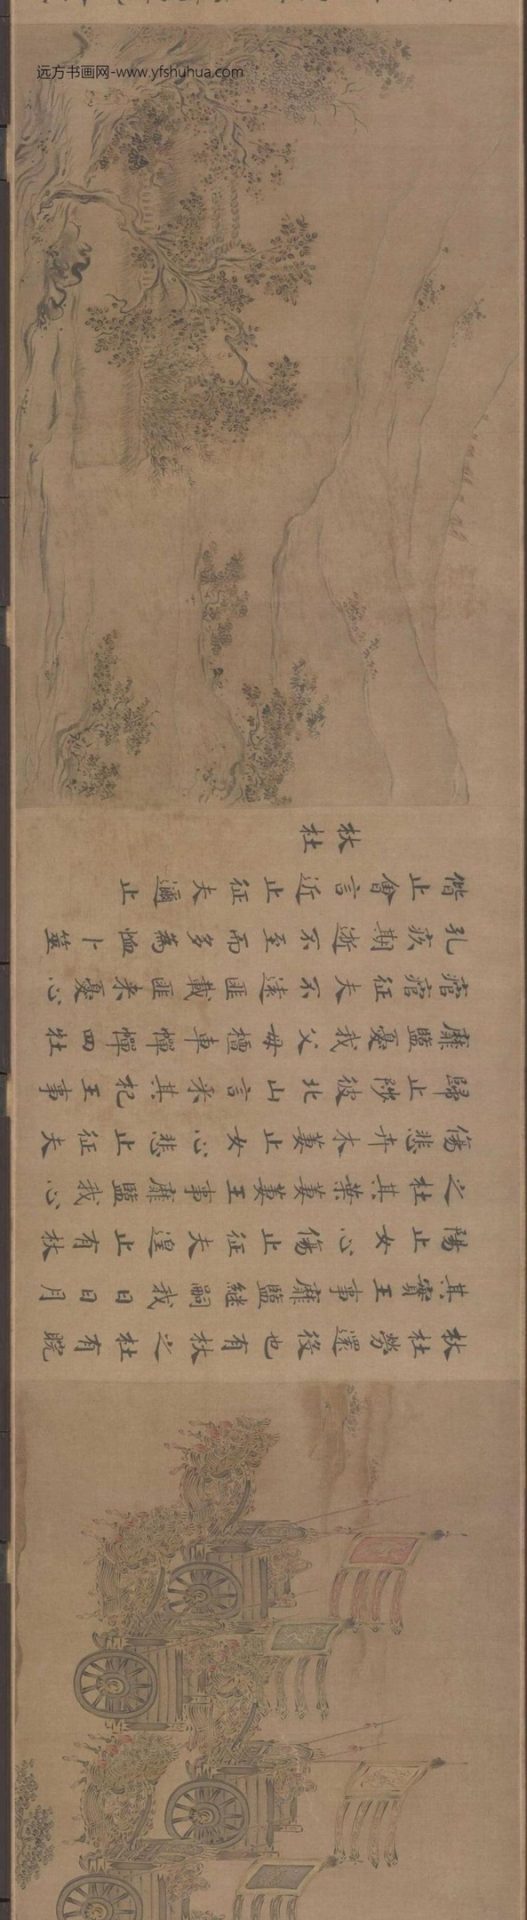 远方书画网-www.yfshuhua.com
杕杜勞還役也有杕之杜有睆
其實王事靡盬繼嗣我日日月
陽止女心傷止征夫遑止有杕
之杜其葉萋萋王事靡盬我心
傷悲卉木萋止女心悲止征夫
歸止陟彼北山言采其杞王事
靡盬憂我父母檀車幝幝四牡
痯痯征夫不遠匪載匪来憂心
孔疚期逝不至而多為恤卜筮
偕止會言近止征夫邇止
杕杜